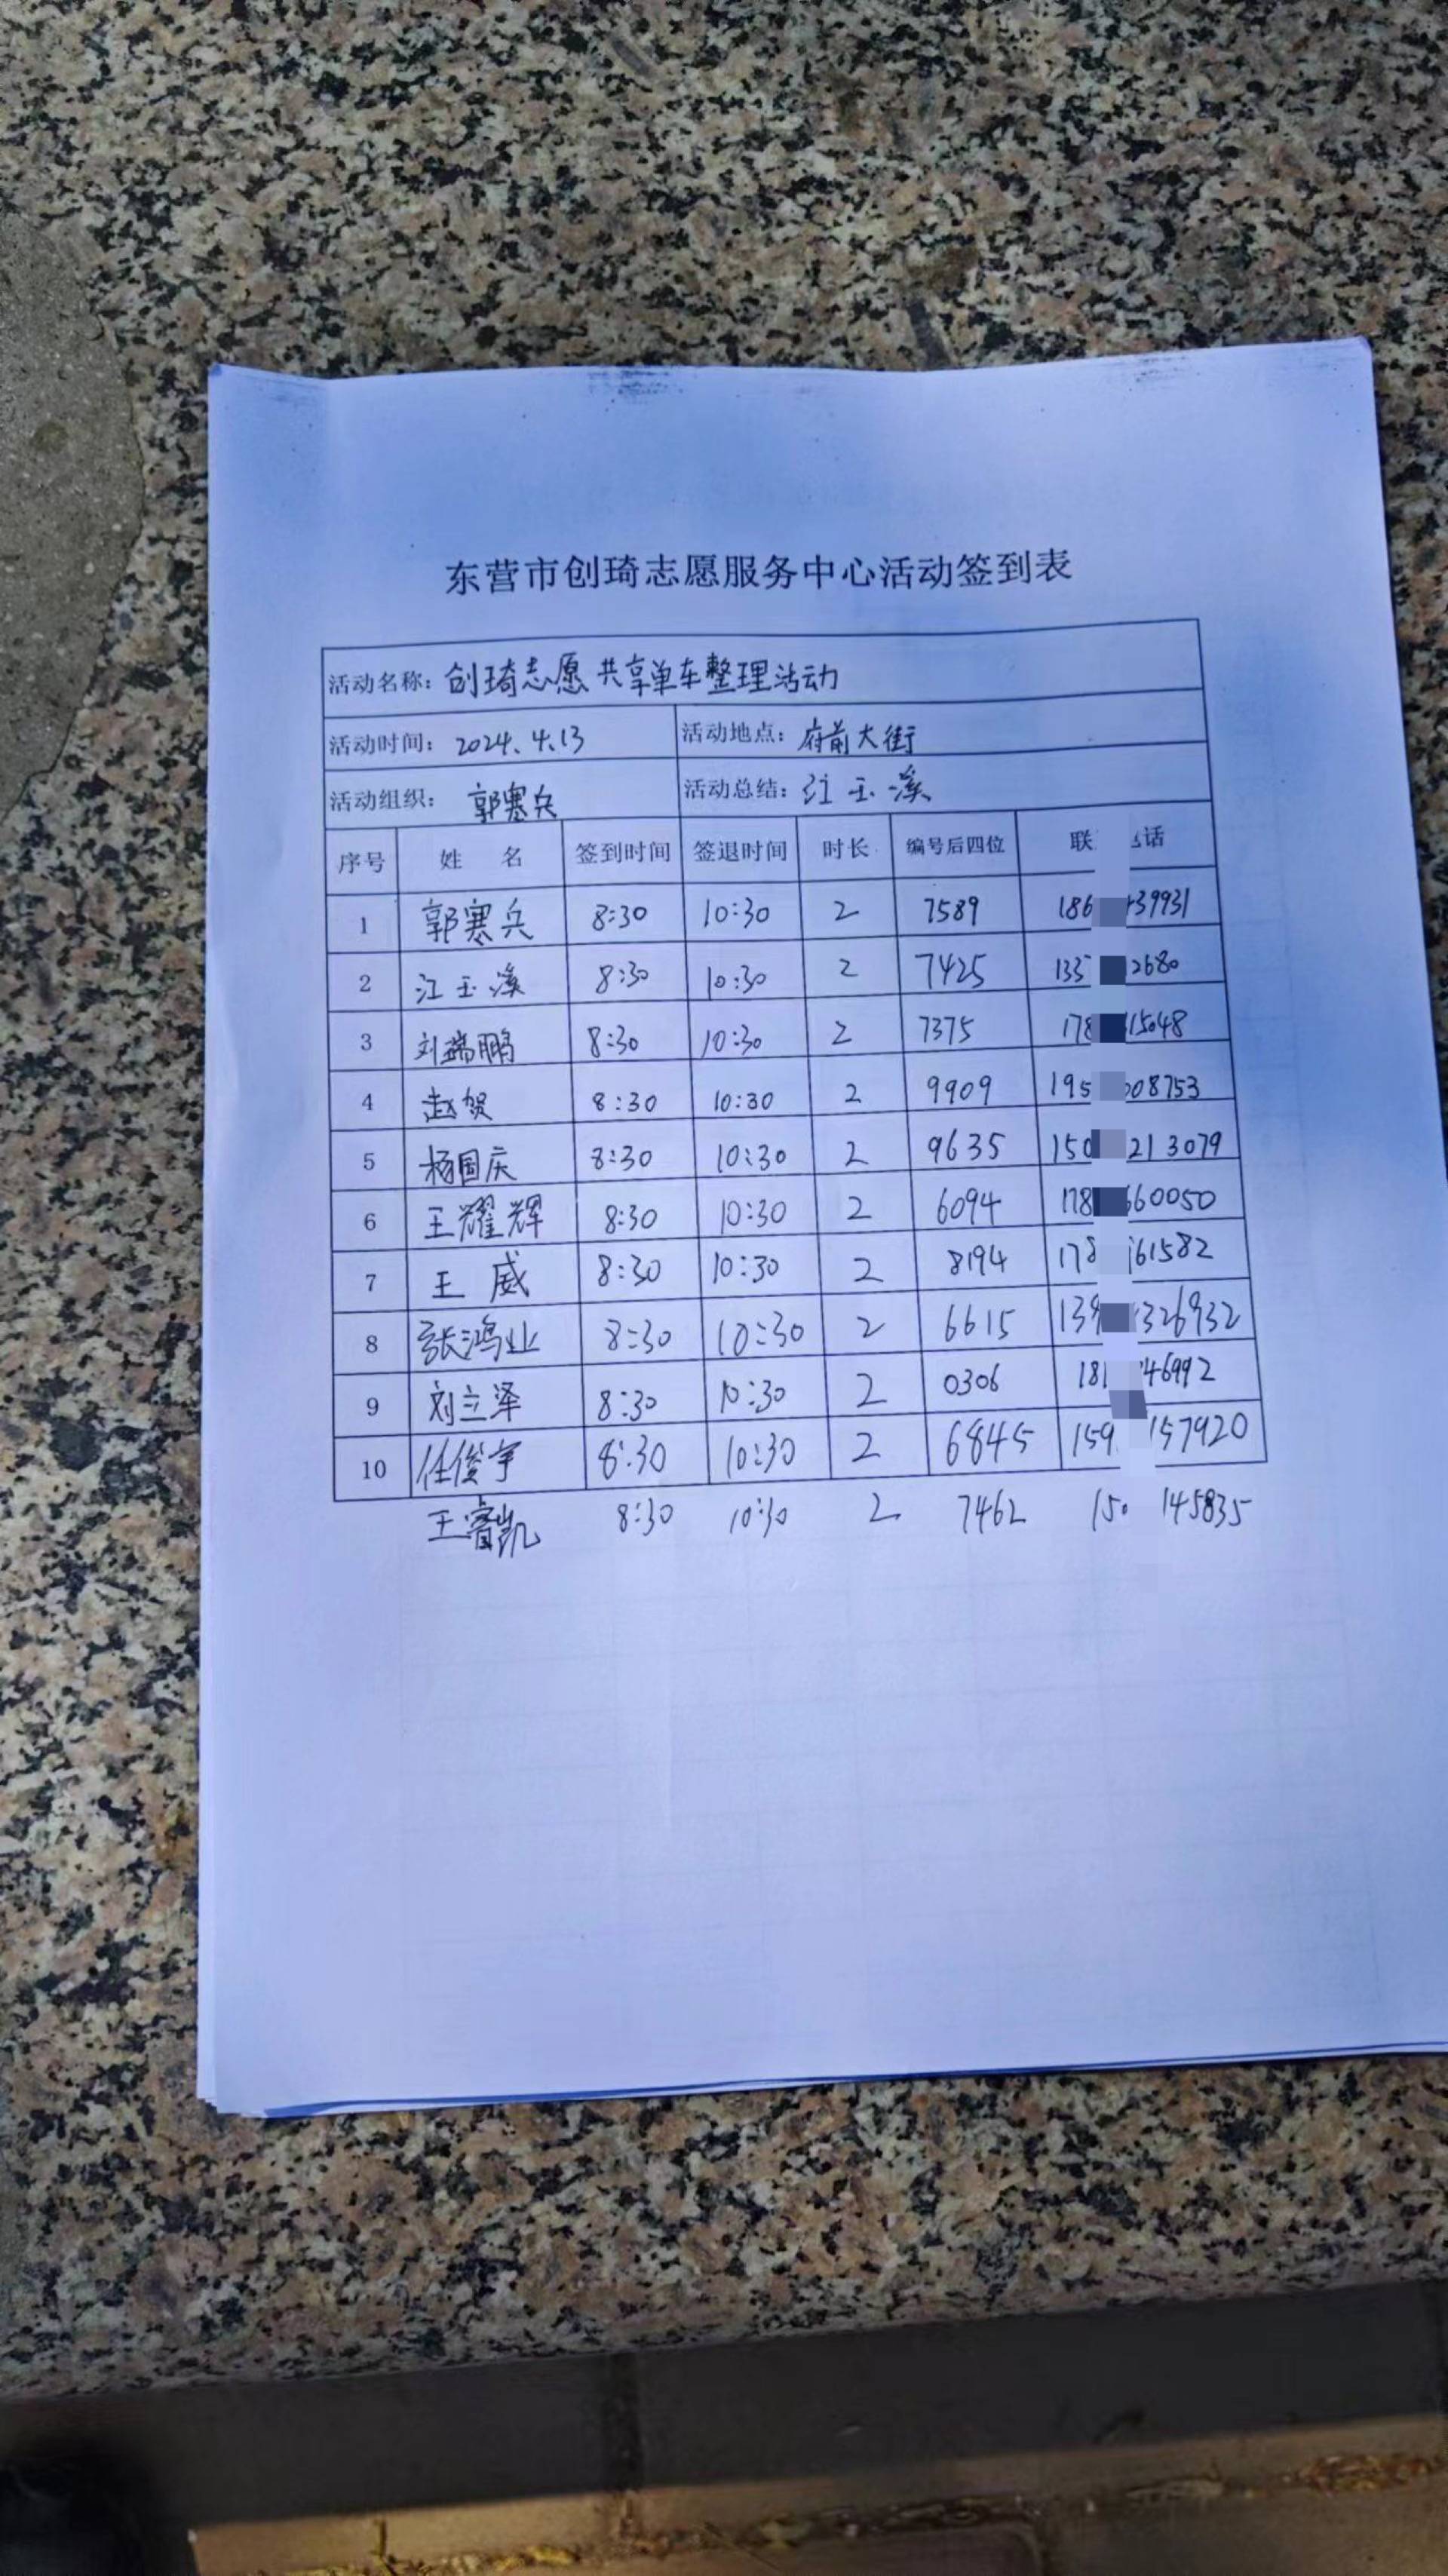 东营市创琦志愿服务中心活动签到表
活动名称: 创琦志愿共享单车整理活动
活动时间: 2024.4.13 活动地点: 府前大街
活动组织: 郭寒兵 活动总结: 江玉溪
序号 姓 名 签到时间 签退时间 时长 编号后四位 联 话
1 郭寒兵 8:30 10:30 2 7589 186 39931
2 江玉溪 8:30 10:30 2 7425 135 2680
3 刘瑞鹏 8:30 10:30 2 7375 178 15048
4 赵贺 8:30 10:30 2 9909 195 08753
5 杨国庆 8:30 10:30 2 9635 150 213079
6 王耀辉 8:30 10:30 2 6094 178 60050
7 王威 8:30 10:30 2 8194 178 61582
8 张鸿业 8:30 10:30 2 6615 139 326932
9 刘立泽 8:30 10:30 2 0306 181 46992
10 任俊宇 8:30 10:30 2 6845 159 157920
王睿凯 8:30 10:30 2 7462 150 145835